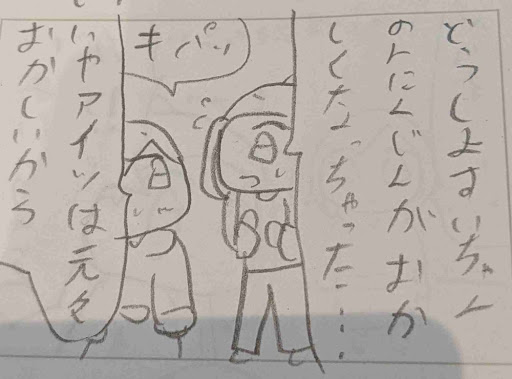 どうしよすいちゃん
のんにんじんがおか
しくなっちゃった…
キパッ
いやアイツは元々
おかしいから